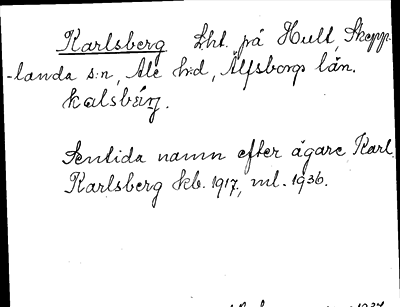 Karlsberg Lht. på Hult, Skepp-
-landa s:n, Ale h:d, Älfsborgs län.
kalsbärj.
Sentida namn efter ägare Karl.
Karlsberg kb. 1917, ml. 1936.